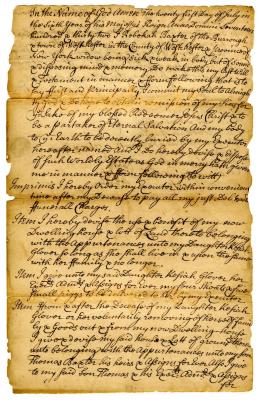 In the Name of God Amen The twenty first Day of July in
the Sixth Year of his Majesties Reign Anno Domini Seventeen
hundred & thirty two I Rebekah Baxter of the
town of Westchester in the County of Westchester & Province
New York widow being sick & weak in body but of sound
& Disposing mind & memory do make this my Last Will
Testament in manner & form following that is to
say first and principally I commit my Soul to Almighty
God & hope to obtain remission of my sins for
the Sake of my blessed Redeemer Jesus Christ & to
be a partaker of Eternal Salvation And my body
to the Earth to be decently buried by my executor
hereafter named And I do hereby devise & Dispose
of Such Worldly Estate as God in mercy hath given
me in manner & form following to wit
Imprimis I hereby Order my Executor within convenient
time after my Decease to pay all my just Debts &
Funeral Charges
Item I hereby devise the use & benefit of my now
Dwelling house & Lot of Land thereto belonging
with the Appurtenances unto my Daughter Keziah
Glover so long as she shall live in & upon the same
with her Family & no longer
Item I give unto my said Daughter Keziah Glover
Admrs & Assigns for Ever my four Shoats
Small piggs to be delivered to her by my executor
Item from & after the Decease of my Daughter Keziah
Glover or Devoluntarily removing of her Self family
& Goods out & from my now Dwelling house
I give & devise my said house & Lot of ground
unto belonging with the Appurtenances unto my son
Thomas Baxter his heirs & Assigns for Ever Also I give
to my said Son Thomas & his Exec. Admrs & Assigns
for